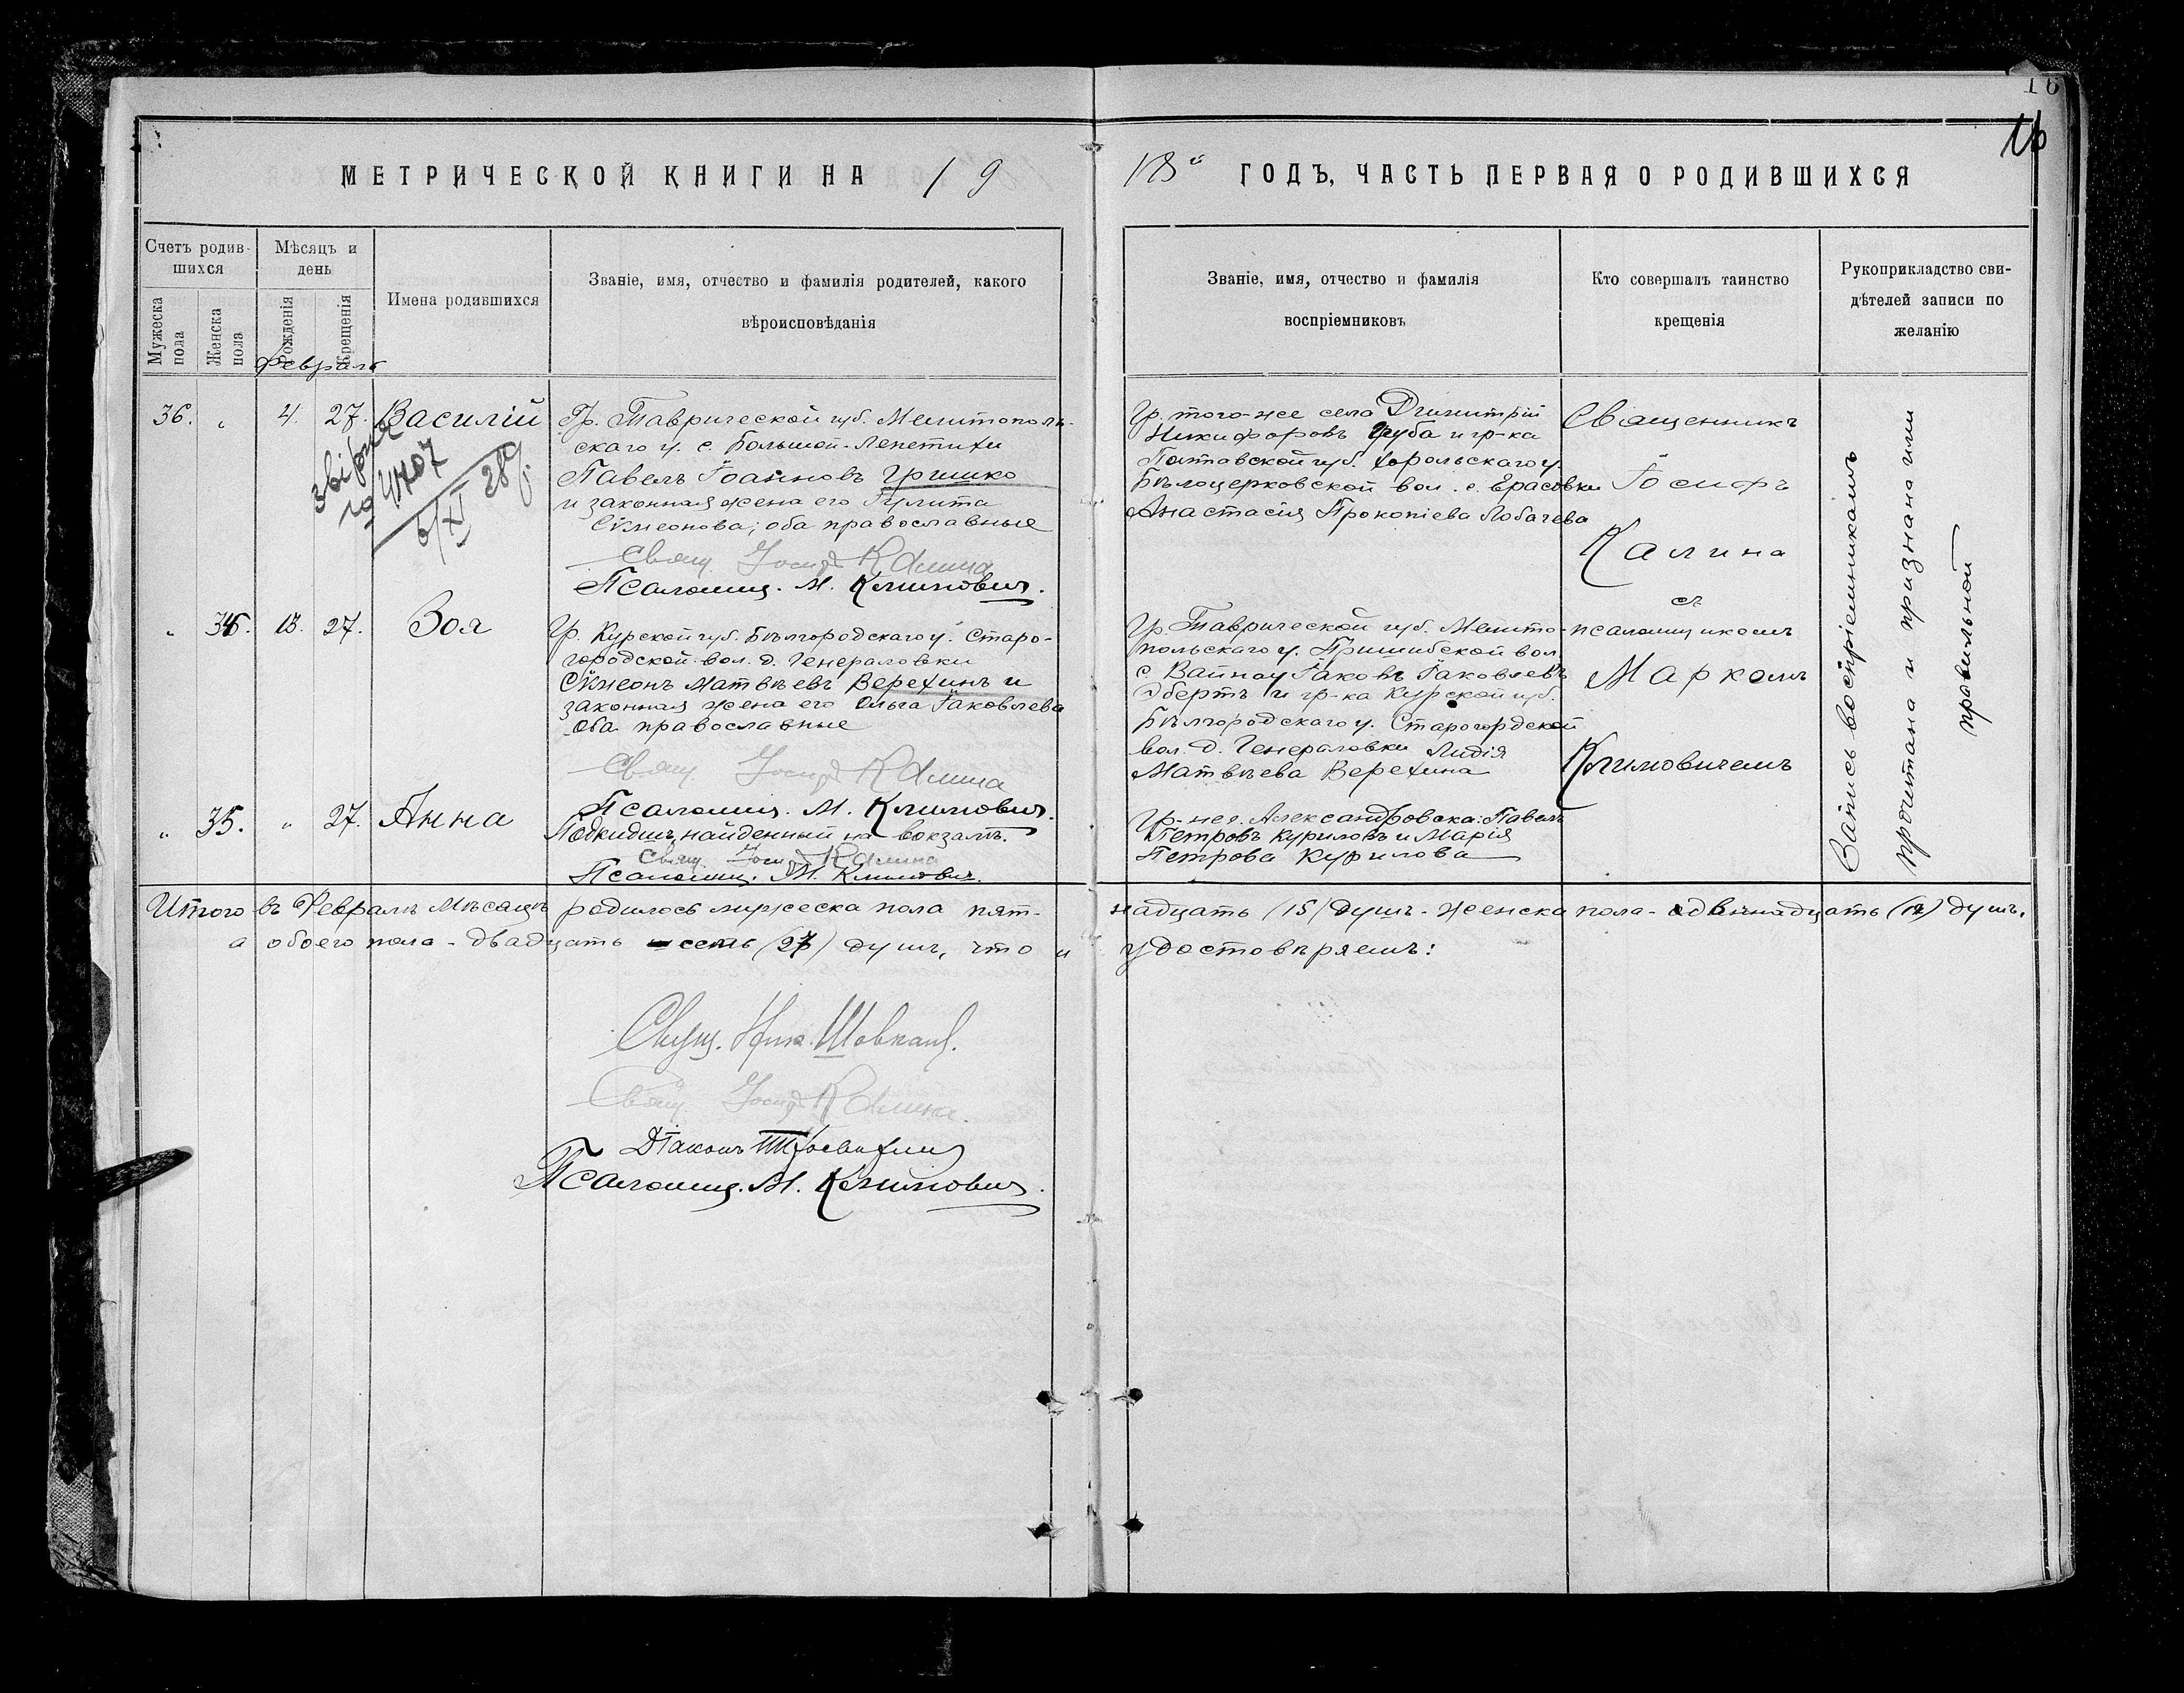 16
16
МЕТРИЧЕСКОЙ КНИГИ НА 19
18й ГОДЪ, ЧАСТЬ ПЕРВАЯ О РОДИВШИХСЯ
Счетъ родив-
шихся
Мужеска пола
Женска пола
Мѣсяцъ и
день
Рожденія
Крещенія
Февраль
Имена родившихся
Званіе, имя, отчество и фамилія родителей, какого
вѣроисповѣданія
Званіе, имя, отчество и фамилія
воспріемниковъ
Кто совершалъ таинство
крещенія
Рукоприкладство сви-
дѣтелей записи по
желанію
36. " 4. 27. Василій
4707
6/XI 28
Гр. Таврической губ. Мелитополь-
скаго у. с. Большой-Лепетихи
Павелъ Іоанновъ Гришко
и законная жена его Гулита
Сѵмеонова; оба православные
Свящ. Іосифъ Калина
Псаломщ. М. Климович.
Гр. того-же села Димитрій
Никифоровъ Груба и гр-ка
Полтавской губ. Хорольскаго у.
Бѣлоцерковской вол. с. Ерасовки
Анастасія Прокопіева Лобачева
Священникъ
Іосифъ
Калина
съ
псаломщикомъ
Маркомъ
Климовичемъ
Запись воспріемникамъ
прочитана и признана ими
правильной
" 34. 13. 27. Зоя
Гр. Курской губ. Бѣлгородскаго у. Старо-
городской вол. д. Генераловки
Сѵмеонъ Матвѣевъ Верехинъ и
законная жена его Ольга Іаковлева
Оба православные
Свящ. Іосифъ Калина
Псаломщ. М. Климович.
Гр. Таврической губ. Мелито-
польскаго у. Пришибской вол.
с. Вайнау Іаковъ Іаковлевъ
Эбертъ и гр-ка Курской губ.
Бѣлгородскаго у. Старогородской
вол. д. Генераловки Лидія
Матвѣева Верехина
" 35. " 27. Анна
Подкидышъ, найденный на вокзалѣ.
Свящ. Іосифъ Калина
Псаломщ. М. Климович.
Гр-не г. Александровска: Павелъ
Петровъ Куриловъ и Марія
Петрова Курилова
Итого въ Февралѣ мѣсяцѣ родилось мужеска пола пят-
надцать (15) душъ - женска пола - двѣнадцать (12) душъ,
а обоего пола - двадцать семь (27) душъ, что и удостовѣряемъ:
Свящ. Ник. Шовкопл.
Свящ. Іосифъ Калина.
Діаконъ
Псаломщ. М. Климович.